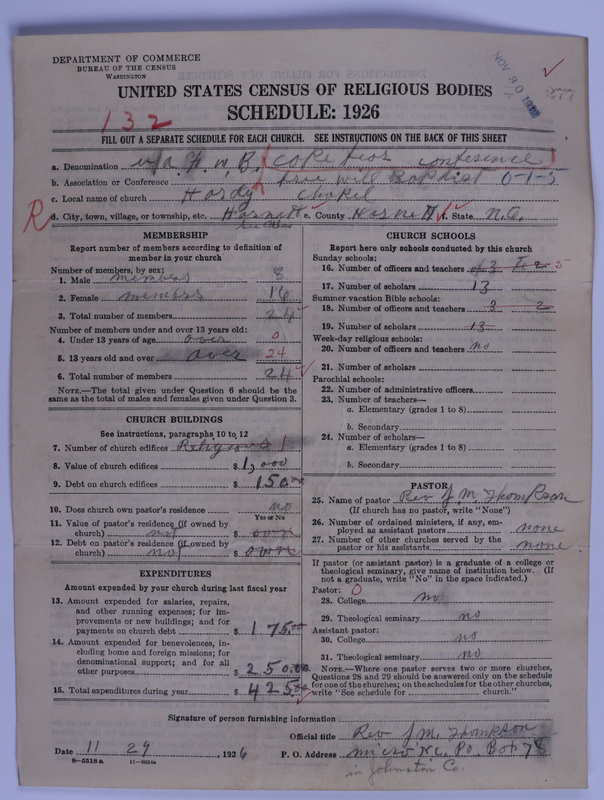 DEPARTMENT OF COMMERCE
BUREAU OF THE CENSUS
WASHINGTON
NOV 30 1926
UNITED STATES CENSUS OF RELIGIOUS BODIES
SCHEDULE: 1926
132
FILL OUT A SEPARATE SCHEDULE FOR EACH CHURCH. SEE INSTRUCTIONS ON THE BACK OF THIS SHEET
a. Denomination F. W. B. cape fear conference
b. Association or Conference free will Baptist 0-1-5
c. Local name of church Hardy chapel
R d. City, town, village, or township, etc. Harnett e. County Harnett f. State N.C.
MEMBERSHIP
Report number of members according to definition of
member in your church
Number of members, by sex:
1. Male members 8
2. Female members 16
3. Total number of members 24
Number of members under and over 13 years old:
4. Under 13 years of age over 0
5. 13 years old and over over 24
6. Total number of members 24
NOTE.—The total given under Question 6 should be the
same as the total of males and females given under Question 3.
CHURCH BUILDINGS
See instructions, paragraphs 10 to 12
7. Number of church edifices Religious 1
8. Value of church edifices $ 1,000
9. Debt on church edifices $ 150.00
10. Does church own pastor's residence no
Yes or No
11. Value of pastor's residence (if owned by
church) not $ own
12. Debt on pastor's residence (if owned by
church) not $ own
EXPENDITURES
Amount expended by your church during last fiscal year
13. Amount expended for salaries, repairs,
and other running expenses; for im-
provements or new buildings; and for
payments on church debt $ 175.00
14. Amount expended for benevolences, in-
cluding home and foreign missions; for
denominational support; and for all
other purposes $ 250.00
15. Total expenditures during year $ 425.00
CHURCH SCHOOLS
Report here only schools conducted by this church
Sunday schools:
16. Number of officers and teachers of 3 T 2 5
17. Number of scholars 13
Summer vacation Bible schools:
18. Number of officers and teachers 3 2
19. Number of scholars 13
Week-day religious schools:
20. Number of officers and teachers no
21. Number of scholars
Parochial schools:
22. Number of administrative officers
23. Number of teachers—
a. Elementary (grades 1 to 8)
b. Secondary
24. Number of scholars—
a. Elementary (grades 1 to 8)
b. Secondary
PASTOR
25. Name of pastor Rev J. M. Thompson
(If church has no pastor, write "None")
26. Number of ordained ministers, if any, em-
ployed as assistant pastors none
27. Number of other churches served by the
pastor or his assistants none
If pastor (or assistant pastor) is a graduate of a college or
theological seminary, give name of institution below. (If
not a graduate, write "No" in the space indicated.)
Pastor: 0
28. College no
29. Theological seminary no
Assistant pastor:
30. College no
31. Theological seminary no
NOTE.—Where one pastor serves two or more churches,
Questions 28 and 29 should be answered only on the schedule
for one of the churches; on the schedules for the other churches,
write "See schedule for church."
Signature of person furnishing information
Official title Rev J. M. Thompson
Date 11 29, 1926 P. O. Address micro N.C. Po. Box 78
8-5518a 11-9024a
in Johnston Co.